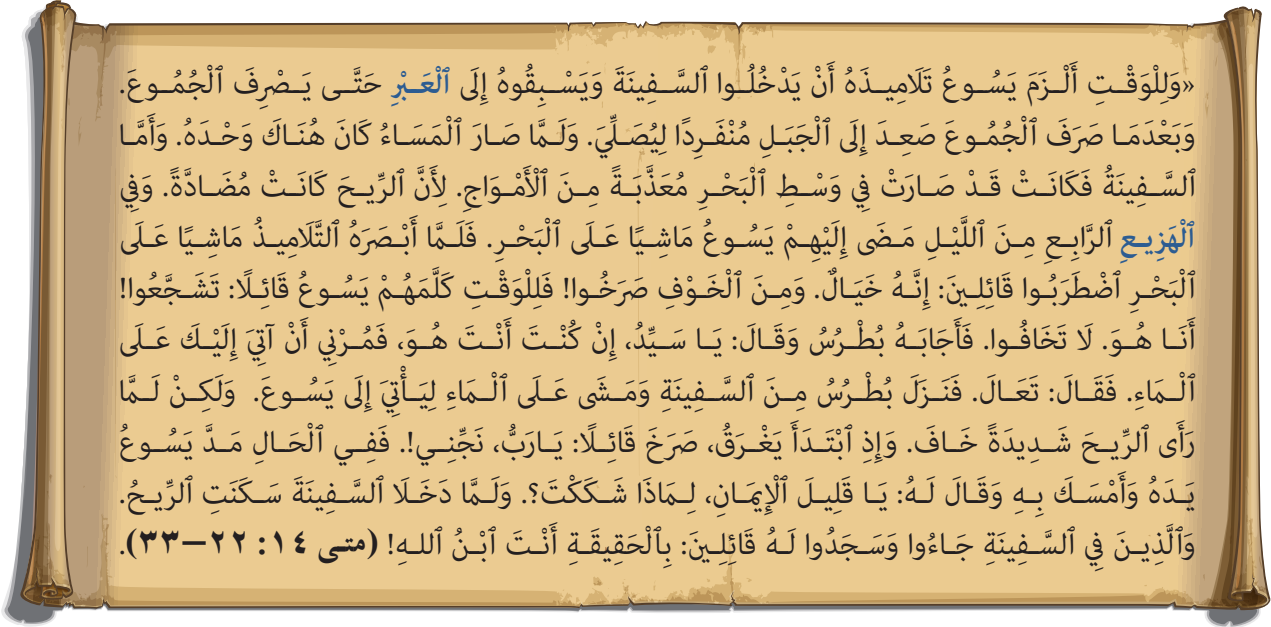 «وَلِلْوَقْتِ أَلْزَمَ يَسُوعُ تَلَامِيذَهُ أَنْ يَدْخُلُوا ٱلسَّفِينَةَ وَيَسْبِقُوهُ إِلَى ٱلْعَبْرِ حَتَّى يَصْرِفَ ٱلْجُمُوعَ.
وَبَعْدَمَا صَرَفَ ٱلْجُمُوعَ صَعِدَ إِلَى ٱلْجَبَلِ مُنْفَرِدًا لِيُصَلِّيَ. وَلَمَّا صَارَ ٱلْمَسَاءُ كَانَ هُنَاكَ وَحْدَهُ. وَأَمَّا
ٱلسَّفِينَةُ فَكَانَتْ قَدْ صَارَتْ فِي وَسْطِ ٱلْبَحْرِ مُعَذَّبَةً مِنَ ٱلْأَمْوَاجِ. لِأَنَّ ٱلرِّيحَ كَانَتْ مُضَادَّةً. وَفِي
ٱلْهَزِيعِ ٱلرَّابِعِ مِنَ ٱللَّيْلِ مَضَى إِلَيْهِمْ يَسُوعُ مَاشِيًا عَلَى ٱلْبَحْرِ. فَلَمَّا أَبْصَرَهُ ٱلتَّلَامِيذُ مَاشِيًا عَلَى
ٱلْبَحْرِ ٱضْطَرَبُوا قَائِلِينَ: إِنَّهُ خَيَالٌ. وَمِنَ ٱلْخَوْفِ صَرَخُوا! فَلِلْوَقْتِ كَلَّمَهُمْ يَسُوعُ قَائِلًا: تَشَجَّعُوا!
أَنَا هُوَ. لَا تَخَافُوا. فَأَجَابَهُ بُطْرُسُ وَقَالَ: يَا سَيِّدُ، إِنْ كُنْتَ أَنْتَ هُوَ، فَمُرْنِي أَنْ آتِيَ إِلَيْكَ عَلَى
ٱلْمَاءِ. فَقَالَ: تَعَالَ. فَنَزَلَ بُطْرُسُ مِنَ ٱلسَّفِينَةِ وَمَشَى عَلَى ٱلْمَاءِ لِيَأْتِيَ إِلَى يَسُوعَ. وَلَكِنْ لَمَّا
رَأَى ٱلرِّيحَ شَدِيدَةً خَافَ. وَإِذِ ٱبْتَدَأَ يَغْرَقُ، صَرَخَ قَائِلًا: يَارَبُّ، نَجِّنِي!. فَفِي ٱلْحَالِ مَدَّ يَسُوعُ
يَدَهُ وَأَمْسَكَ بِهِ وَقَالَ لَهُ: يَا قَلِيلَ ٱلْإِيمَانِ، لِمَاذَا شَكَكْتَ؟. وَلَمَّا دَخَلَا ٱلسَّفِينَةَ سَكَنَتِ ٱلرِّيحُ.
وَٱلَّذِينَ فِي ٱلسَّفِينَةِ جَاءُوا وَسَجَدُوا لَهُ قَائِلِينَ: بِٱلْحَقِيقَةِ أَنْتَ ٱبْنُ ٱللهِ! (متى ١٤: ٢٢–٣٣).